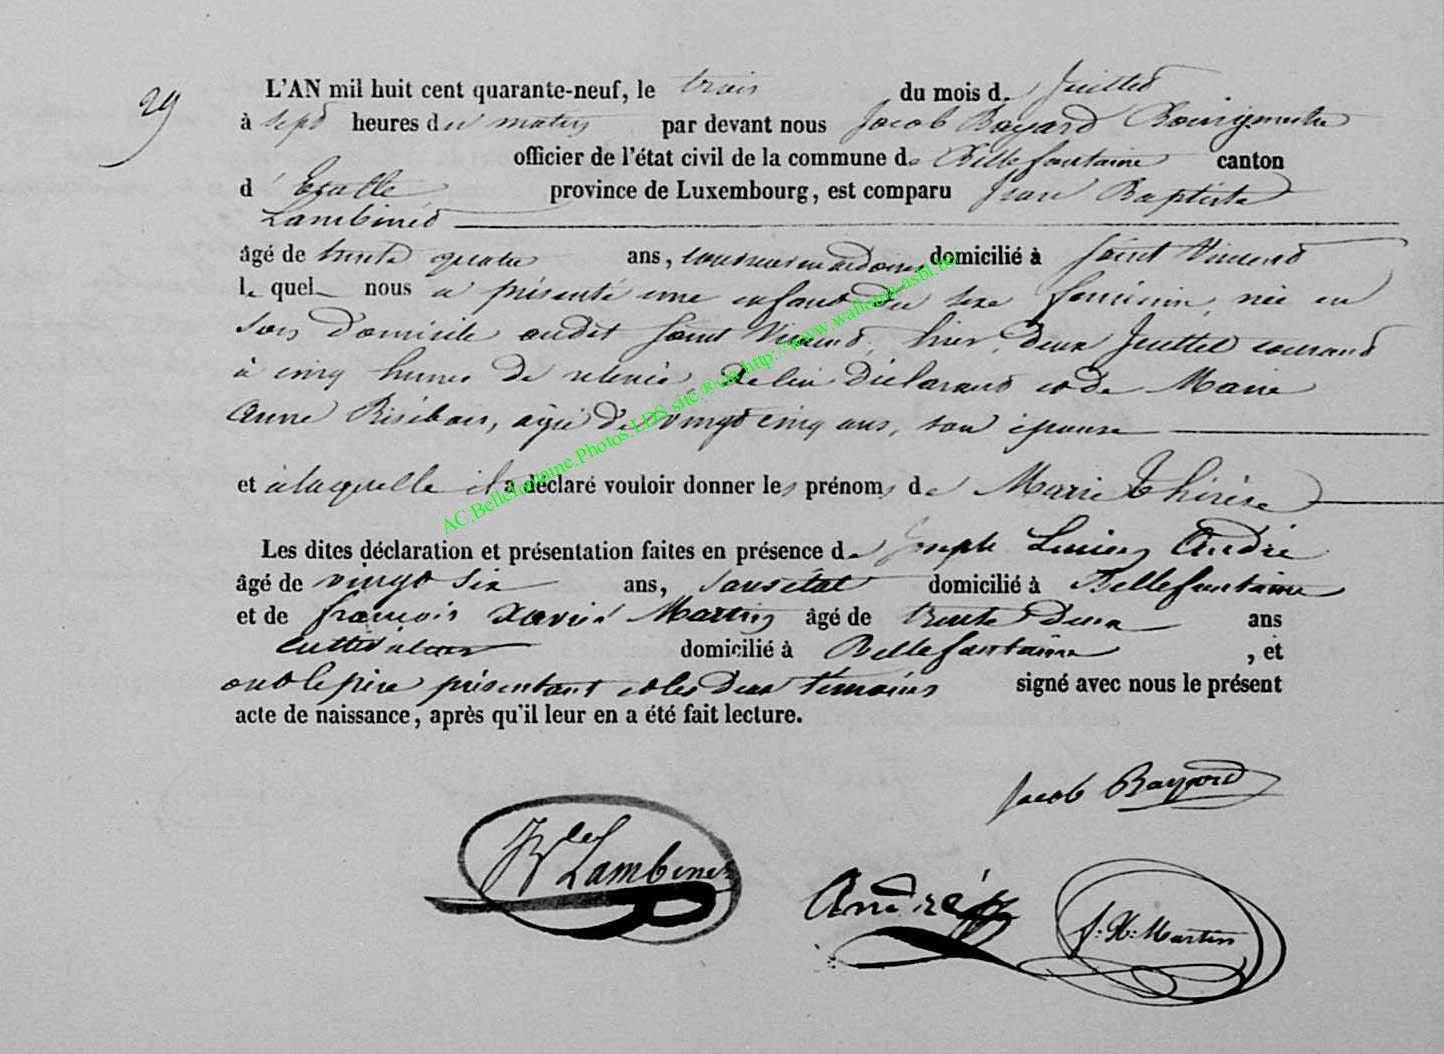 29
L'AN mil huit cent quarante-neuf, le trois du mois de Juillet
à sept heures du matin par devant nous Jacob Bayard Bourgmestre
officier de l'état civil de la commune de Bellefontaine canton
d'Etalle province de Luxembourg, est comparu Jean Baptiste
Lambinet
âgé de trente quatre ans, domicilié à Saint Vincent
lequel nous a présenté une enfant du sexe féminin, née en
son domicile audit Saint Vincent, hier, deux Juillet courant
à cinq heures de relevée, de lui déclarant et de Marie
Anne, agée de vingt cinq ans, son épouse
et à laquelle il a déclaré vouloir donner les prénoms de Marie Thérèse
Les dites déclaration et présentation faites en présence de Joseph Lucien André
âgé de vingt six ans, sans état domicilié à Bellefontaine
et de françois Xavier Martin âgé de trente deux ans
cultivateur domicilié à Bellefontaine, et
ont le père présentant et les deux témoins signé avec nous le présent
acte de naissance, après qu'il leur en a été fait lecture.
Jacob Bayard
JBte Lambinet
André
f: X: Martin
AC.Bellefontaine.Photos.LDS site ® via http://www.wallonia-asbl.be/